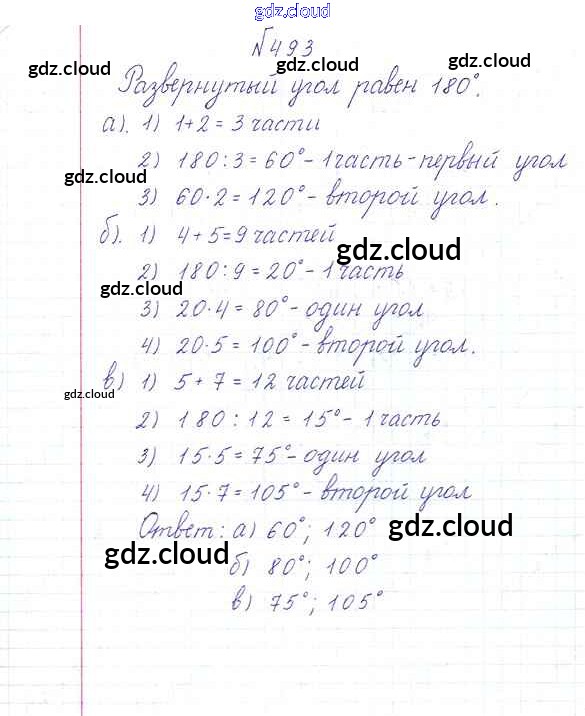 gdz.cloud
№493
gdz.cloud gdz.cloud
Развернутый угол равен 180°.
gdz.cloud gdz.cloud
а). 1) 1+2=3 части
2) 180:3=60°-1часть-первый угол
gdz.cloud
3) 60·2=120°-второй угол.
б). 1) 4+5=9 частей
gdz.cloud
2) 180:9=20°-1часть
gdz.cloud
3) 20·4=80°-один угол
4) 20·5=100°-второй угол.
в) 1) 5+7=12 частей
gdz.cloud
2) 180:12=15°-1часть
3) 15·5=75°-один угол
4) 15·7=105°-второй угол
Ответ: а) 60°; 120°
gdz.cloud
gdz.cloud
б) 80°; 100°
в) 75°; 105°